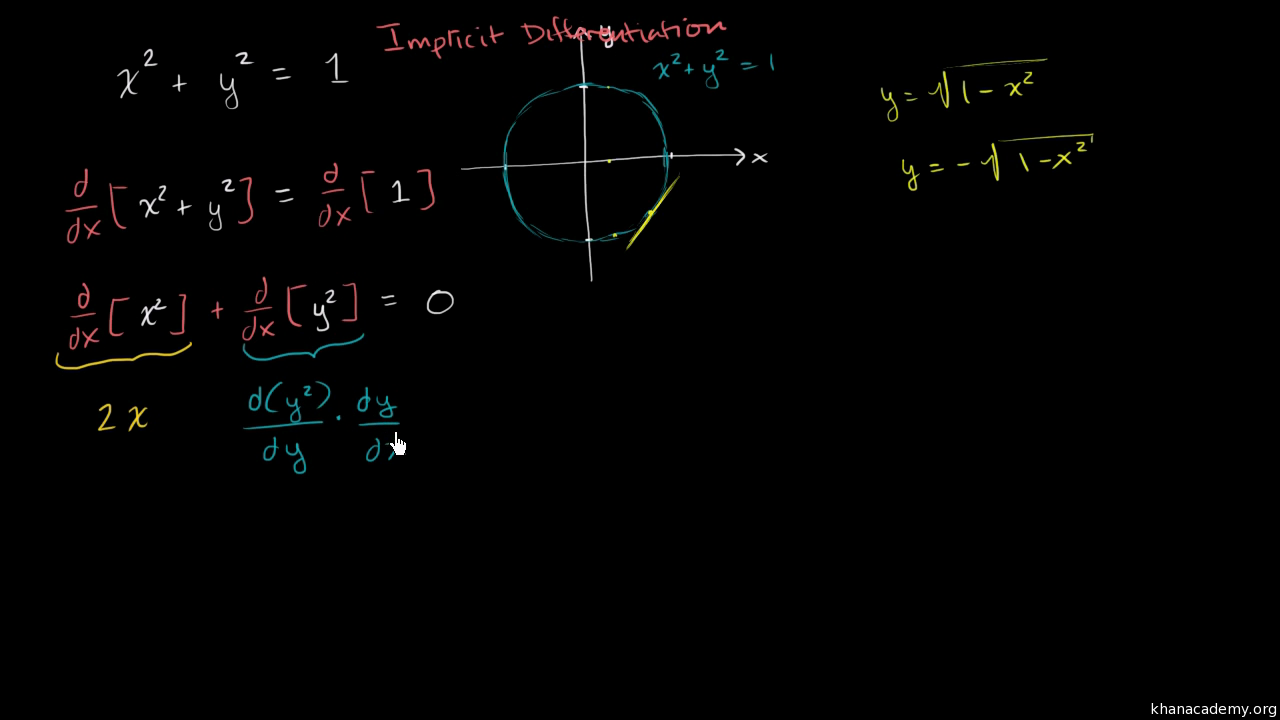 Implicit Differentiation
x² + y² = 1
y
x² + y² = 1
y = √(1 - x²)
x
y = -√(1 - x²)
d/dx [x² + y²] = d/dx [1]
d/dx [x²] + d/dx [y²] = 0
2x d(y²)/dy · dy/dx
khanacademy.org